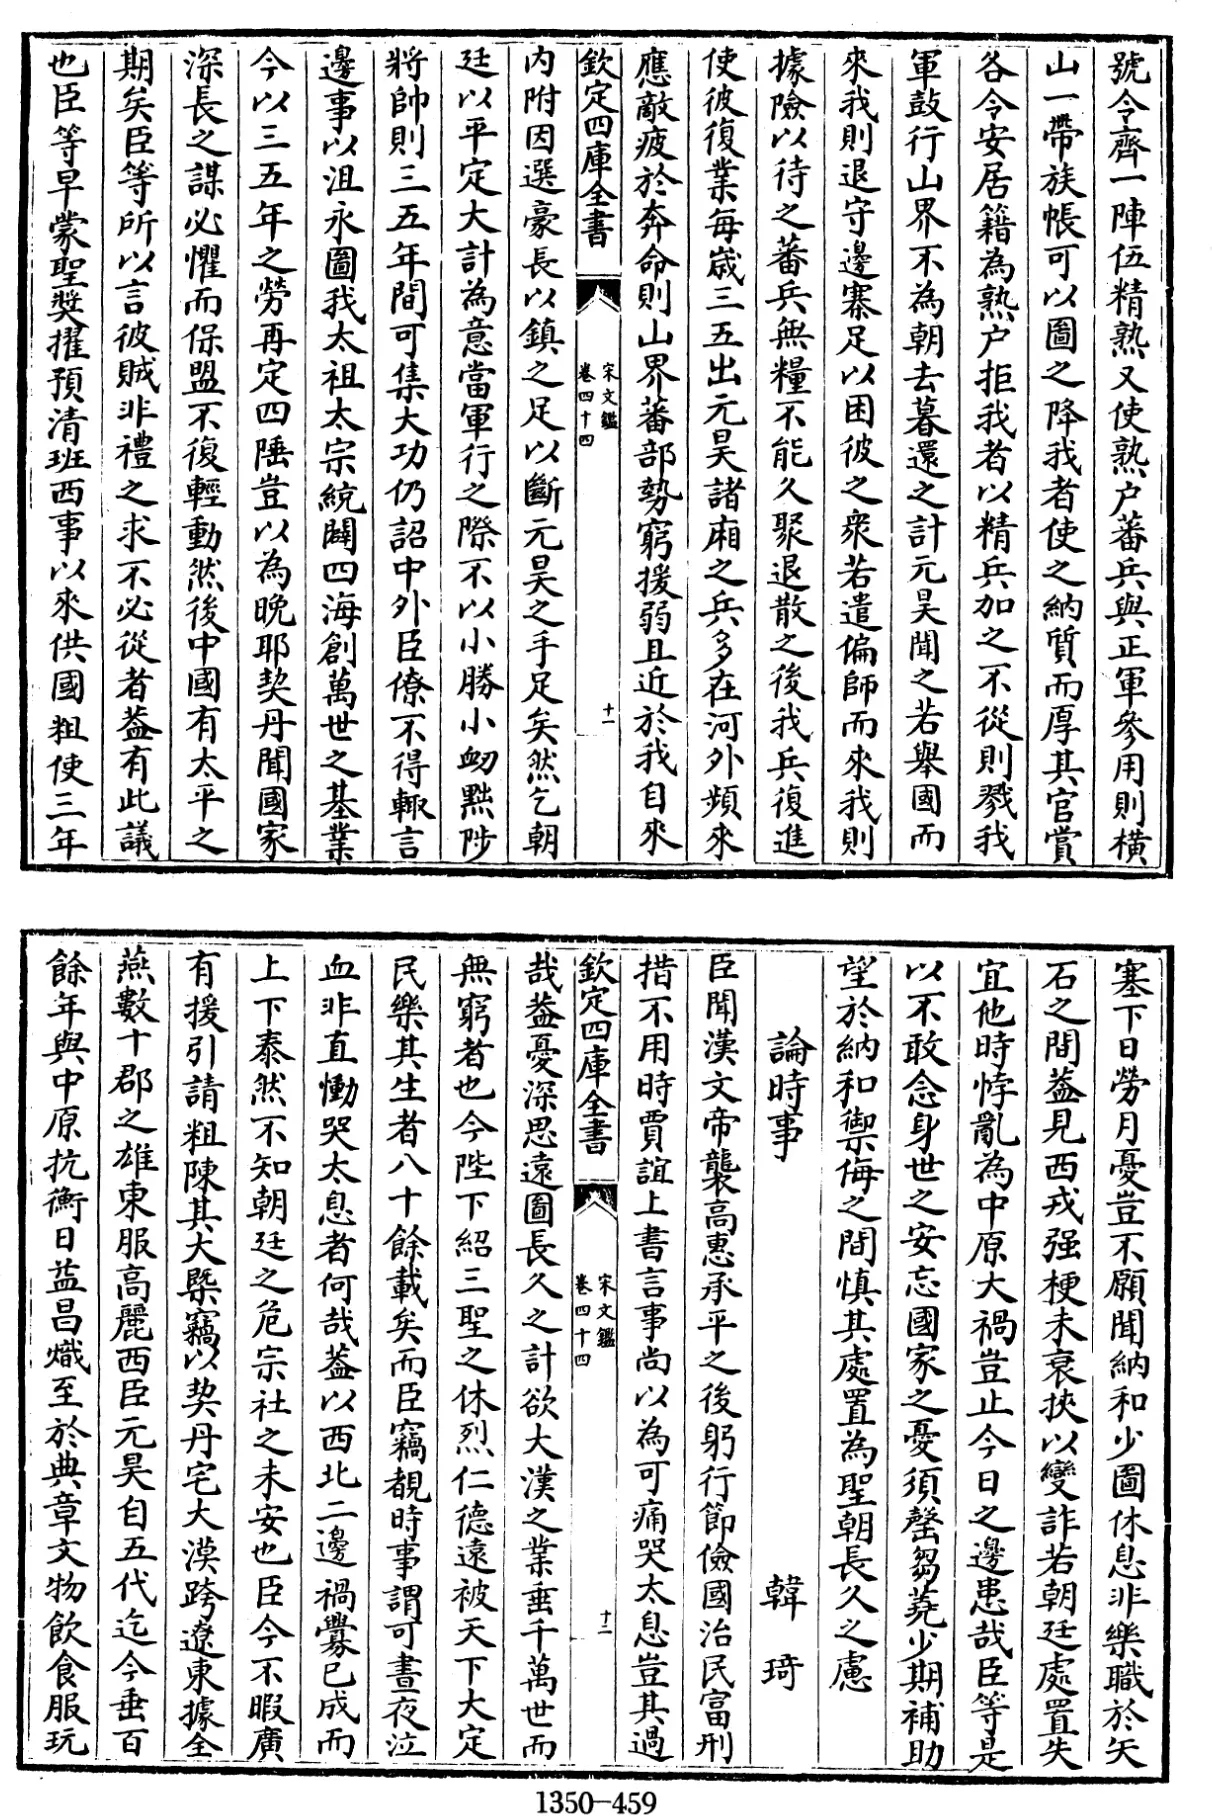 號令齊一陣伍精熟又使熟户蕃兵與正軍參用則橫
山一帶族帳可以圖之降我者使之納質而厚其官賞
各令安居籍為熟户拒我者以精兵加之不從則戮我
軍鼓行山界不為朝去暮還之計元昊聞之若舉國而
來我則退守邊寨足以困彼之衆若遣偏師而來我則
據險以待之蕃兵無糧不能久聚退散之後我兵復進
使彼復業每歲三五出元昊諸廂之兵多在河外頻來
應敵疲於奔命則山界蕃部勢窮援弱且近於我自來
欽定四庫全書
宋文鑑
卷四十四
十一
内附因選豪長以鎮之足以斷元昊之手足矣然乞朝
廷以平定大計為意當軍行之際不以小勝小衂黜陟
將帥則三五年間可集大功仍詔中外臣僚不得輙言
邊事以沮永圖我太祖太宗統闢四海創萬世之基業
今以三五年之勞再定四陲豈以為晩耶契丹聞國家
深長之謀必懼而保盟不復輕動然後中國有太平之
期矣臣等所以言彼賊非禮之求不必從者葢有此議
也臣等早蒙聖奬擢預清班西事以來供國粗使三年
塞下日勞月憂豈不願聞納和少圖休息非樂職於矢
石之間葢見西戎强梗未衰挾以變詐若朝廷處置失
宜他時悖亂為中原大禍豈止今日之邊患哉臣等是
以不敢念身世之安忘國家之憂須罄芻蕘少期補助
望於納和禦侮之間慎其處置為聖朝長久之慮
論時事 韓琦
臣聞漢文帝襲高惠承平之後躬行節儉國治民富刑
措不用時賈誼上書言事尚以為可痛哭太息豈其過
欽定四庫全書
宋文鑑
卷四十四
十二
哉葢憂深思遠圖長久之計欲大漢之業垂千萬世而
無窮者也今陛下紹三聖之休烈仁德遠被天下大定
民樂其生者八十餘載矣而臣竊覩時事謂可晝夜泣
血非直慟哭太息者何哉葢以西北二邊禍釁已成而
上下泰然不知朝廷之危宗社之未安也臣今不暇廣
有援引請粗陳其大槩竊以契丹宅大漠跨遼東據全
燕數十郡之雄東服高麗西臣元昊自五代迄今垂百
餘年與中原抗衡日益昌熾至於典章文物飲食服玩
1350-459